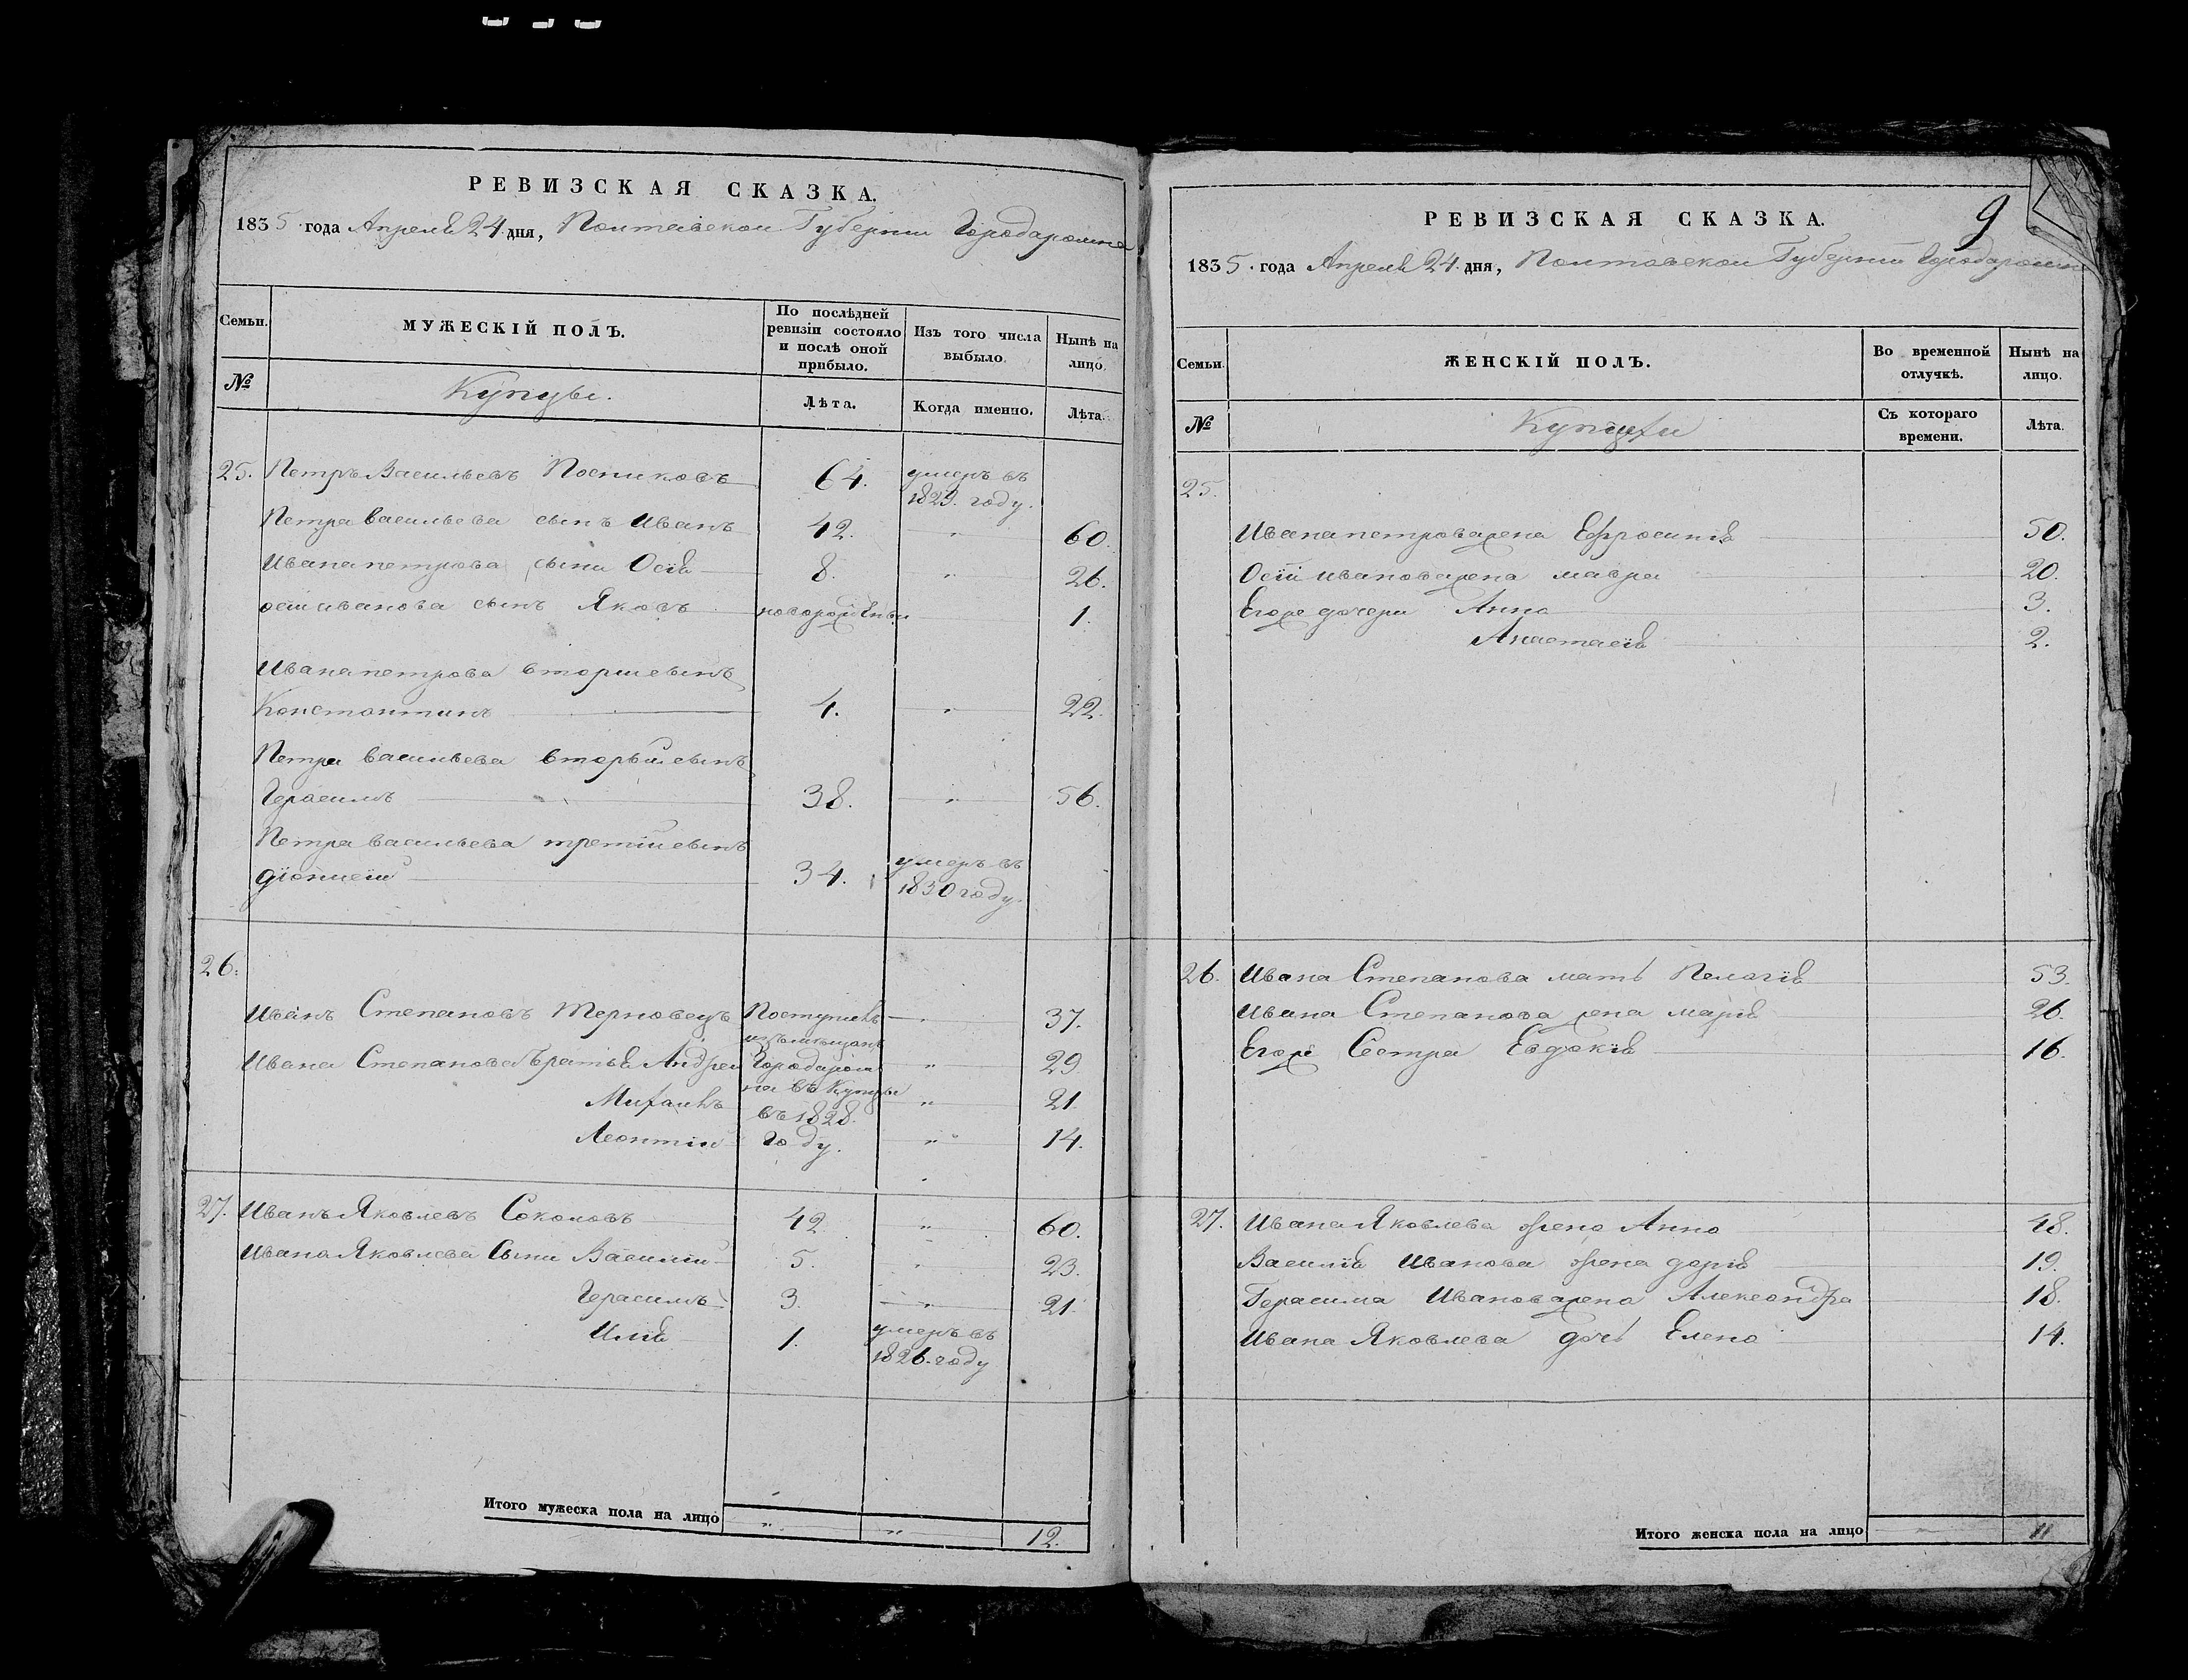 РЕВИЗСКАЯ СКАЗКА.
1835 года Апреля 24 дня, Полтавской Губернии Города Ромна
Семьи.
МУЖЕСКІЙ ПОЛЪ.
По послѣдней ревизіи состояло и послѣ оной прибыло.
Изъ того числа выбыло.
Нынѣ на лицо.
№
Купцы.
Лѣта.
Когда именно.
Лѣта.
25. Петръ Васильевъ 64. умеръ въ
1829. году.
Петра Васильева сынъ Иванъ 42. " 60.
Ивана петрова сыни Осія 8. " 26.
осіи иванова сынъ Яковъ новорожденъ 1.
Ивана петрова вторыи сынъ
Константинъ 4. " 22.
Петра васильева вторый сынъ
Герасимъ 38. " 56.
Петра васильева третій сынъ
діонисій 34. умеръ въ
1830 году.
26.
Иванъ Степановъ Терновецъ Поступилъ 37.
изъ мещанъ
Ивана Степанова братья Андреи Города Ром " 29.
на въ Купцы
Михаилъ въ 1828. " 21.
Леонтіи году. " 14.
27. Иванъ Яковлевъ Соколовъ 42. " 60.
Ивана Яковлева Сыни Василіи 5. " 23.
Герасимъ 3. " 21.
Илія 1. умеръ въ
1826. году
Итого мужеска пола на лицо " " 12.
9
РЕВИЗСКАЯ СКАЗКА.
1835. года Апреля 24. дня, Полтавской Губерніи Города Ромна
Семьи.
ЖЕНСКІЙ ПОЛЪ.
Во временной отлучкѣ.
Нынѣ на лицо.
№
Купцы
Съ котораго времени.
Лѣта.
25.
Ивана петрова жена Ефросинія 50.
Осіи иванова жена мавра 20.
Егоже дочери Анна 3.
Анастасія 2.
26. Ивана Степанова мать Пелагія 53.
Ивана Степанова жена марія 26.
Егоже Сестра Евдокія 16.
27. Ивана Яковлева жена Анна 48.
Василія Иванова жена дарія 19.
Герасима Иванова жена Александра 18.
Ивана Яковлева дочь Елена 14.
Итого женска пола на лицо 11